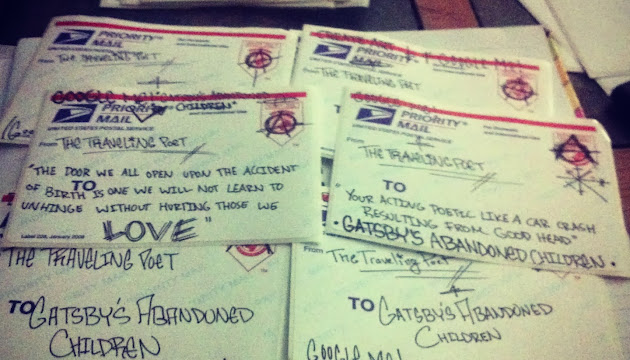 PRIORITY
MAIL
UNITED STATES POSTAL SERVICE
From THE TRAVELING POET
PRIORITY
MAIL
From THE TRAVELING POET
CHILDREN"
PRIORITY
MAIL
UNITED STATES POSTAL SERVICE
From THE TRAVELING POET
"THE DOOR WE ALL OPEN UPON THE ACCIDENT
TO
OF BIRTH IS ONE WE WILL NOT LEARN TO
UNHINGE WITHOUT HURTING THOSE WE
LOVE"
Label 228, January 2008
PRIORITY
MAIL
UNITED STATES POSTAL SERVICE
From THE TRAVELING POET
TO
"YOUR ACTING POETIC LIKE A CAR CRASH
RESULTING FROM GOOD HEAD"
· GATSBY'S ABANDONED CHILDREN ·
THE TRAVELING POET
TO GATSBY'S ABANDONED
CHILDREN
From The Traveling Poet
TO GATSBY'S ABANDONED
CHILDREN
GOOGLE ME!